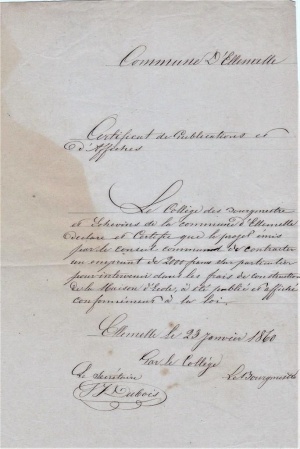 Commune D'Ellemelle
Certificat de Publications et
d'Affiches
Le Collège des Bourgmestre
et Echevins de la commune d'Ellemelle
déclare et Certifie que le projet émis
par le conseil communal de contracter
un emprunt de 2000 francs
pour intervenir dans les frais de construction
de la Maison d'école, a été publié et affiché
conformément à la Loi.
Ellemelle le 23 janvier 1860
Par le Collège
Le Secrétaire
Le Bourgmestre
Dubois